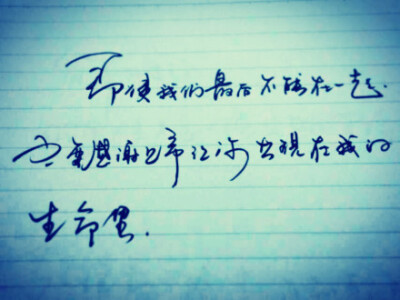 即使我们最后不能在一起.
也要感谢上帝让你出现在我的
生命里.